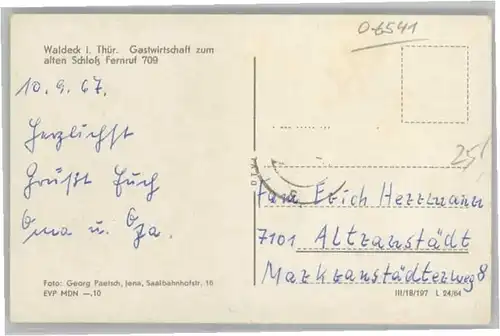 0-6541
Waldeck i. Thür. Gastwirtschaft zum
alten Schloß Fernruf 709
10. 9. 67.
Herzlichst
Grüßt Euch
Oma u. Opa.
25,
Fam. Erich Herrmann
7101 Altranstädt
Markranstädterweg 8
Foto: Georg Paetsch, Jena, Saalbahnhofstr. 16
EVP MDN —.10
III/18/197 L 24/64